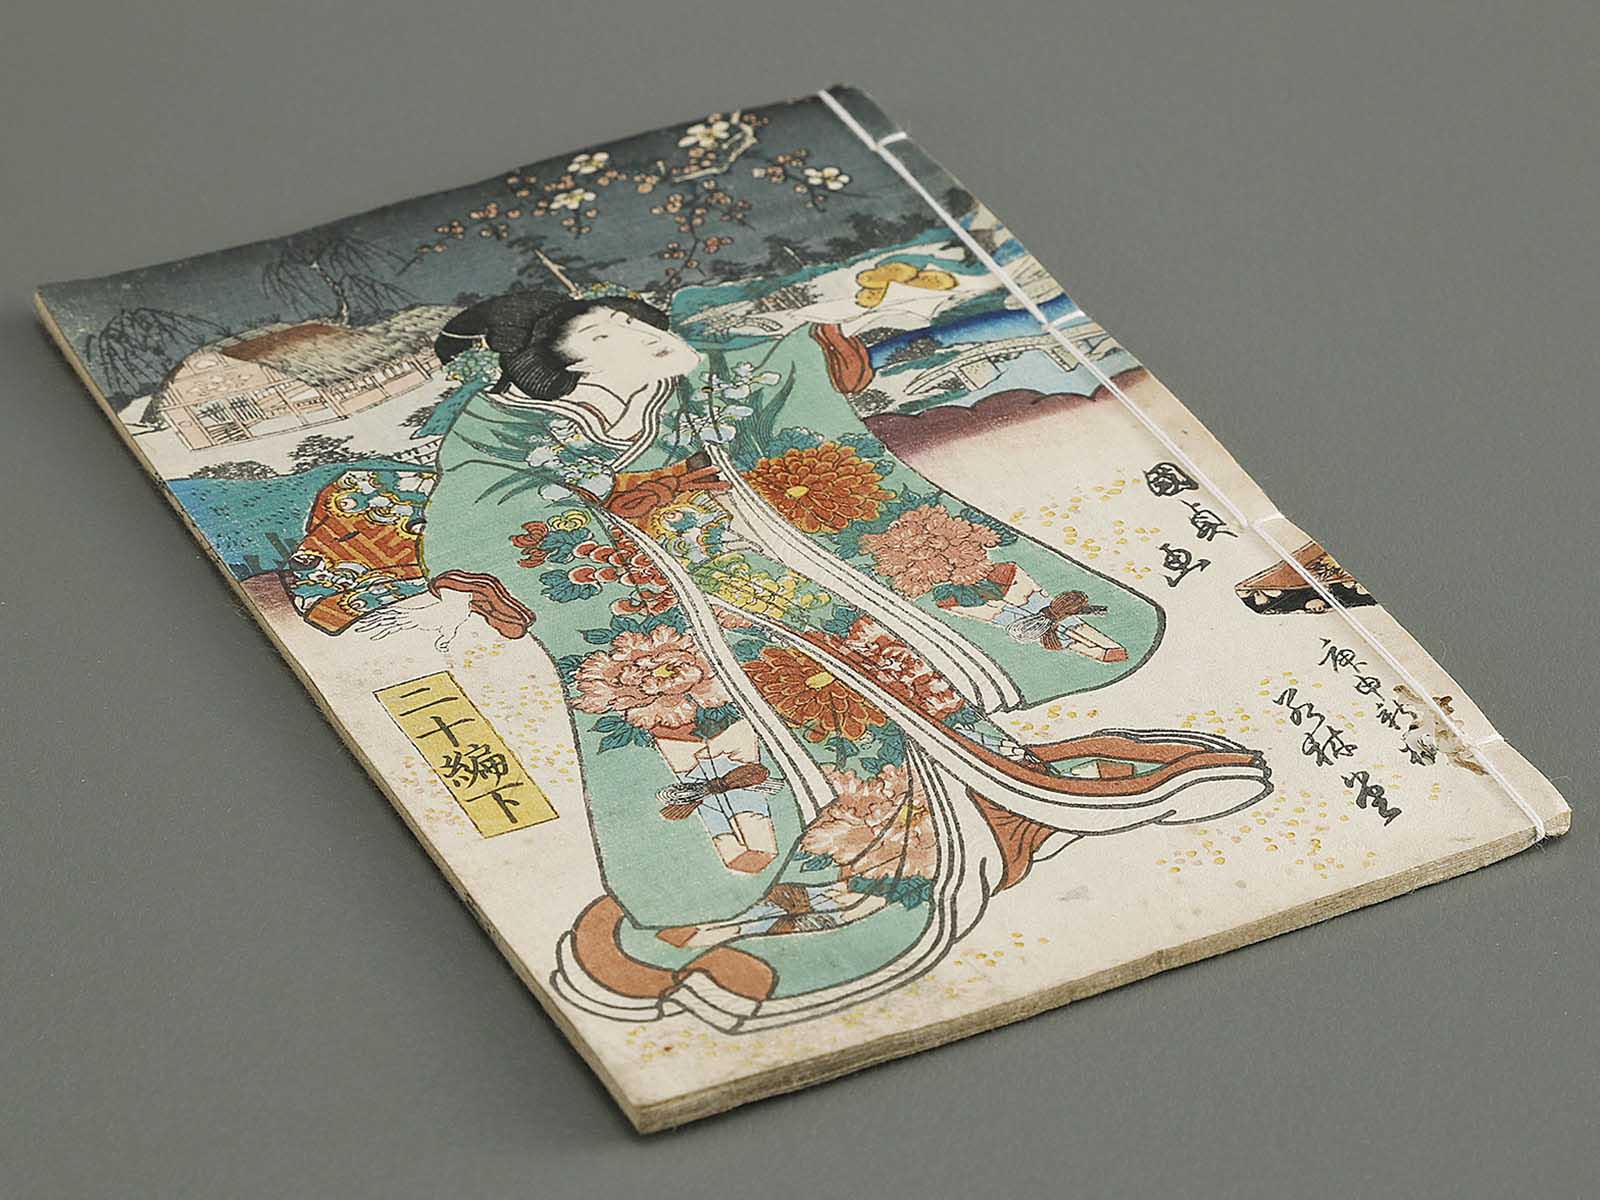 國貞画
庚申新板
若林堂
二十編下